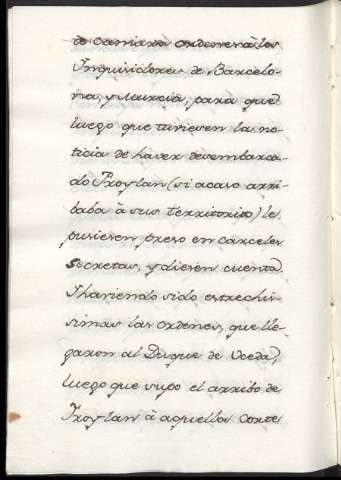 to camara ordenen à los
Inquisidores de Barcelo-
na, y Murcia, para que
luego que tuviesen la no-
ticia de haver desembarca-
do Froylan (si acaso arri-
baba à sus territorios) le
pusiesen preso en carceles
Secretas, y diesen cuenta.
I haviendo sido estrechis-
simas las ordenes, que lle-
garon al Duque de Uceda,
luego que supo el arribo de
Froylan à aquella Corte